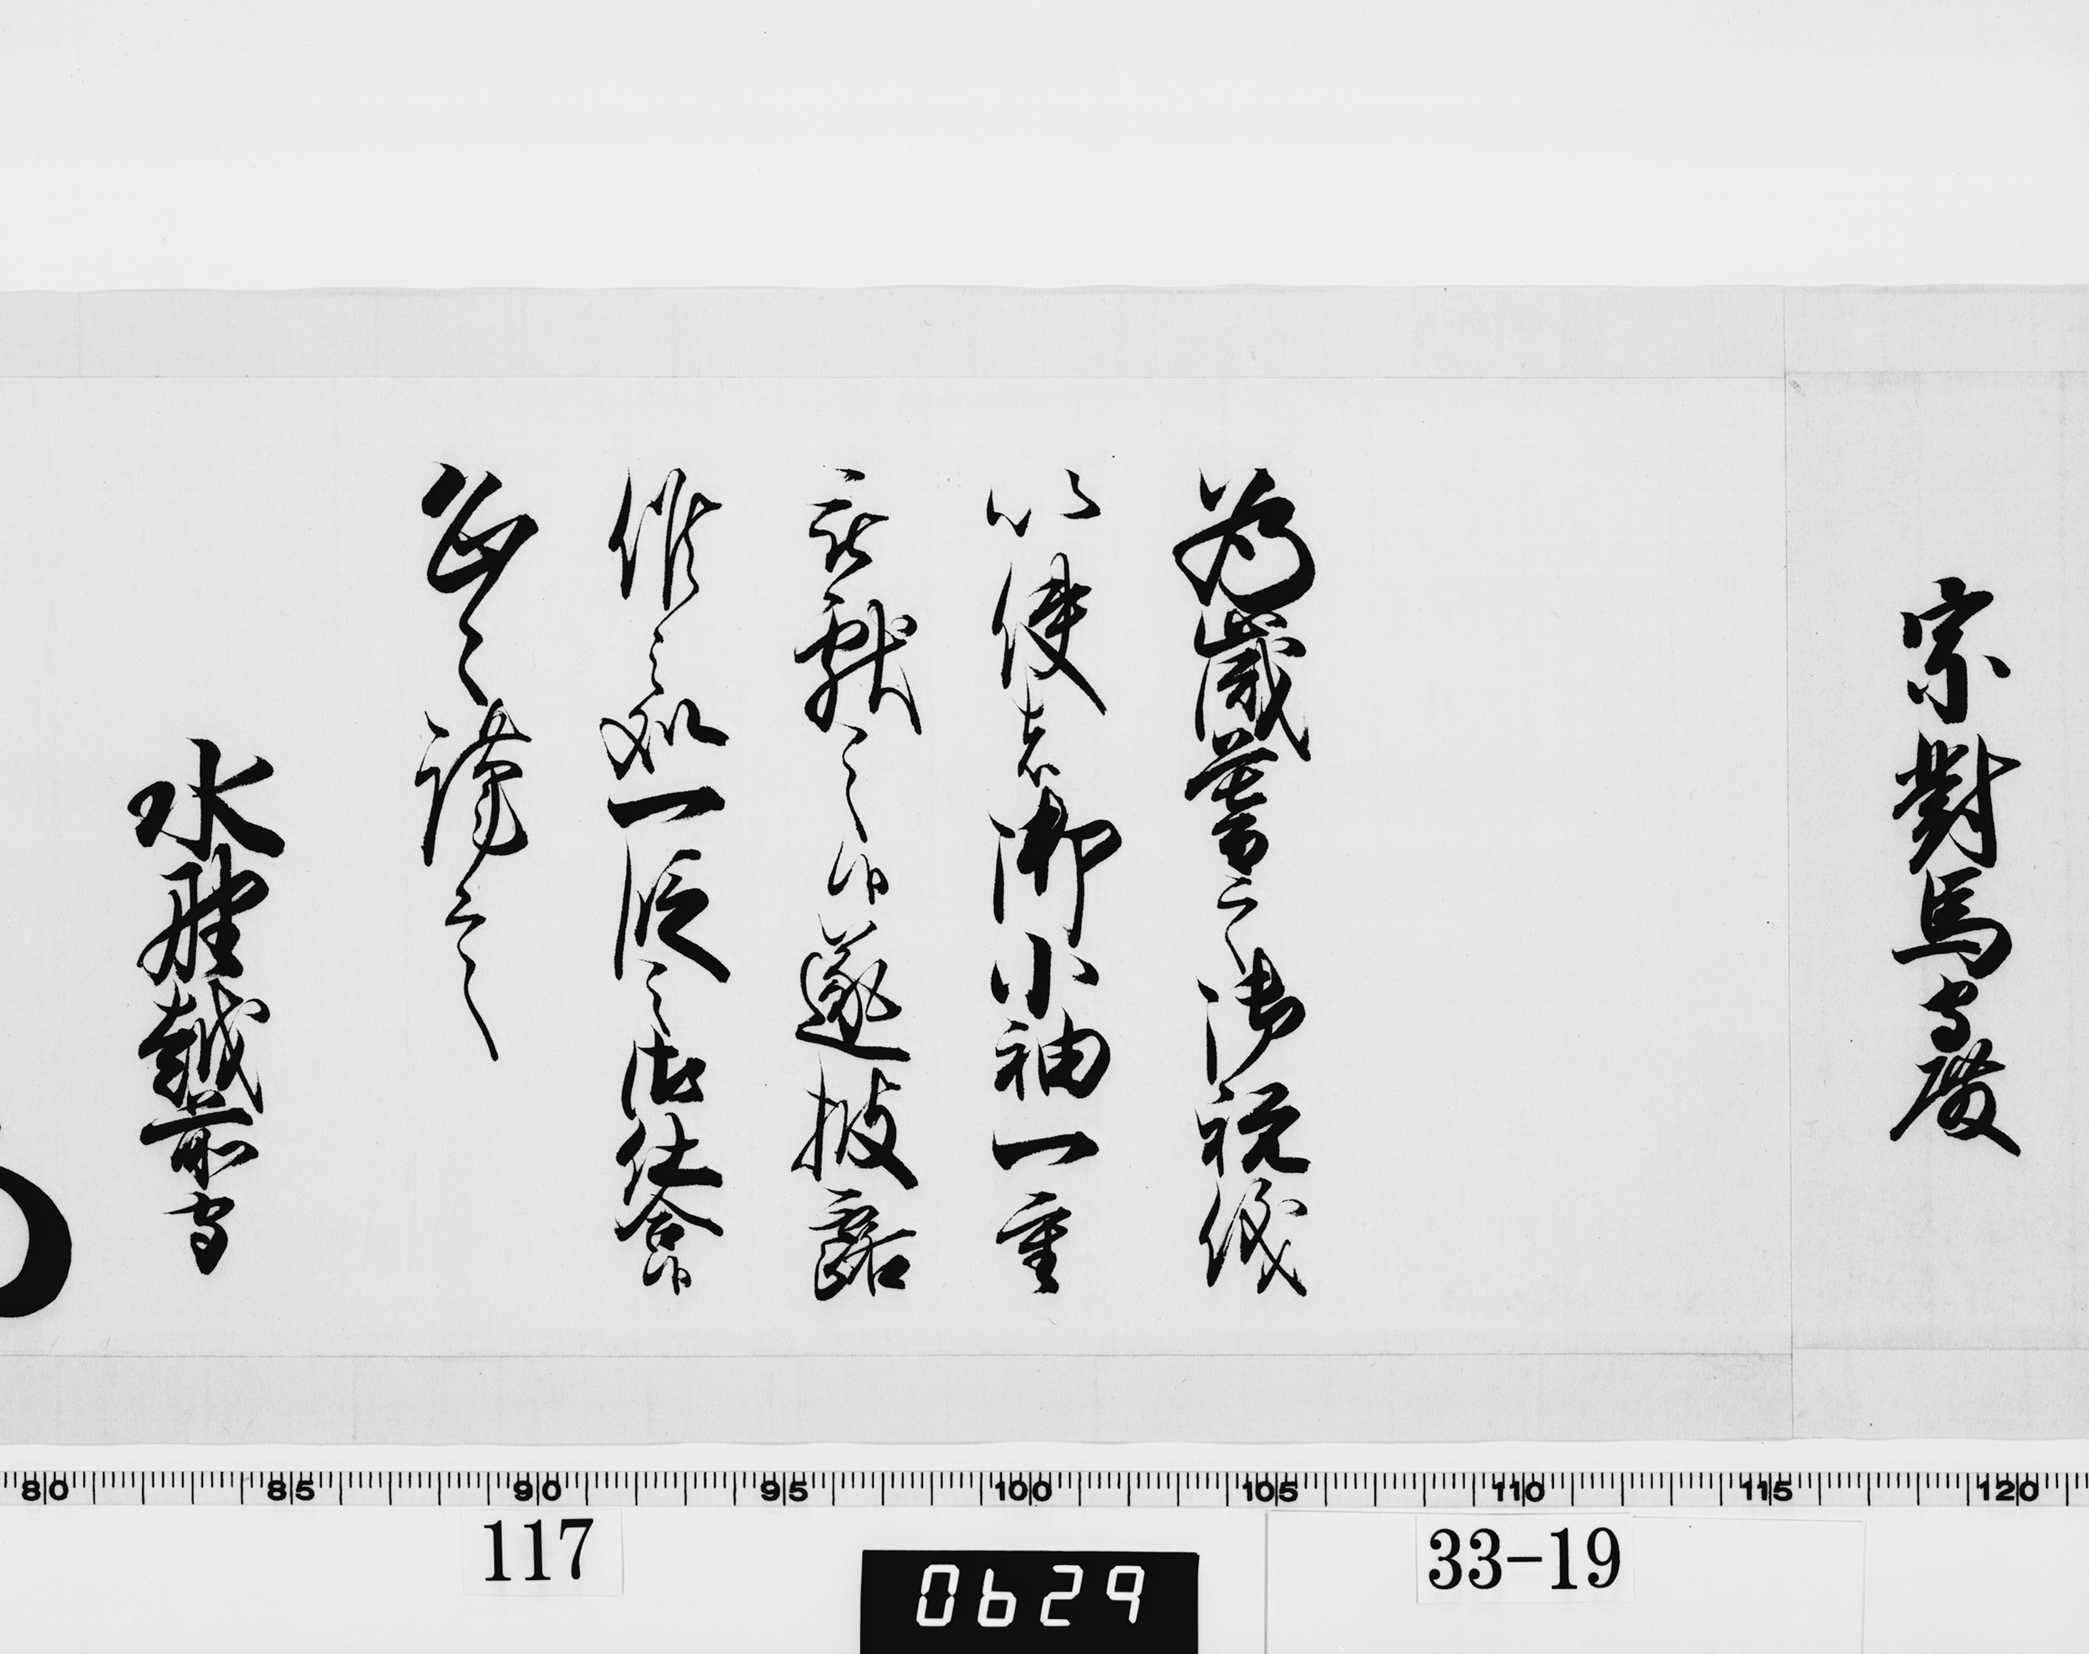 宗對馬守殿
為歳暮之御祝儀
以使者御小袖一重
被献之候遂披露
候之処一段之御仕合候
恐々謹言
水野越前守
80 85 90 95 100 105 110 115 120
117
0629
33-19